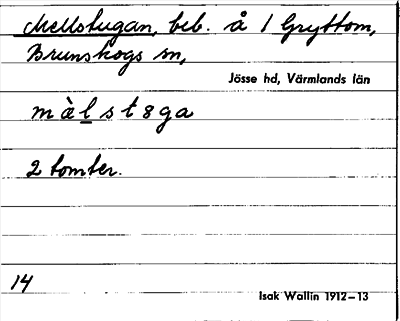 Mellstugan, beb. å 1 Gryttom,
Brunskogs sn,
Jösse hd, Värmlands län
mὰl̲st8ga
2 tomter.
14
Isak Wallin 1912–13